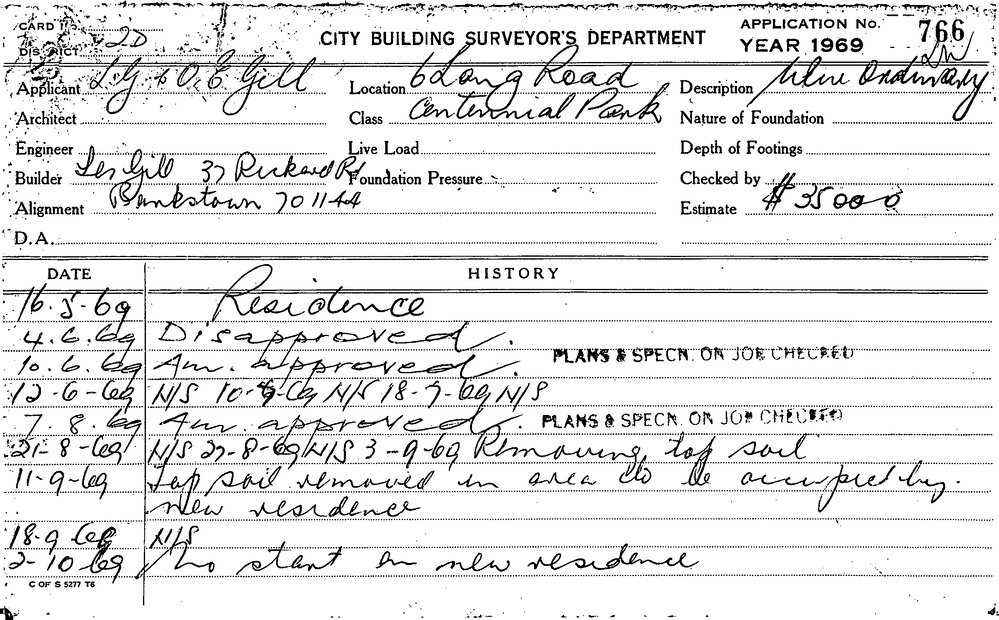 CARD No.
DISTRICT 2D
CITY BUILDING SURVEYOR'S DEPARTMENT
APPLICATION No. 766
YEAR 1969
Applicant L G & O E Gill
Location 6 Long Road
Description New Ordinary
Architect
Class Centennial Park
Nature of Foundation
Engineer
Live Load
Depth of Footings
Builder Les Gill 37 Rickard Rd
Foundation Pressure
Checked by
Alignment Bankstown 70 1144
Estimate $35000
D.A.
DATE HISTORY
16-5-69 Residence
4.6.69 Disapproved.
10.6.69 Am. approved. PLANS & SPECN. ON JOB CHECKED
12-6-69 N/S 10-7-69 N/S 18-7-69 N/S
7.8.69 Am. approved. PLANS & SPECN. ON JOB CHECKED
21-8-69 N/S 27-8-69 N/S 3-9-69 Removing top soil
11-9-69 Top soil removed in area to be occupied by.
new residence
18-9-69 N/S
2-10-69 No start on new residence
C OF S 5277 T6